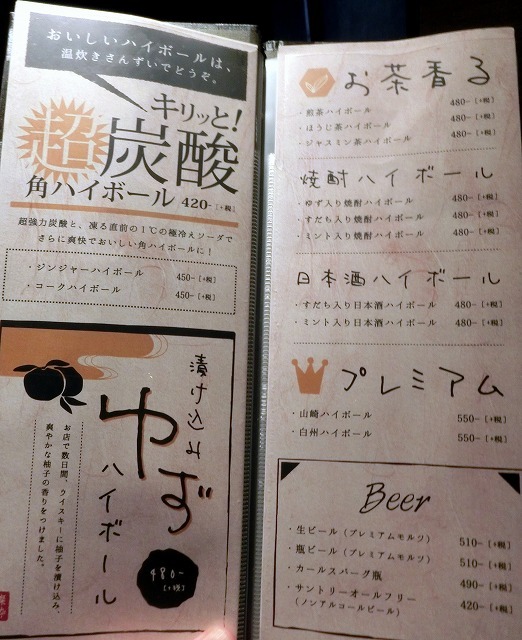 おいしいハイボールは、
温炊きさんずいでどうぞ。
キリッと!
超炭酸
角ハイボール 420-[+税]
超強力炭酸と、凍る直前の1℃の極冷えソーダで
さらに爽快でおいしい角ハイボールに!
・ジンジャーハイボール 450-[+税]
・コークハイボール 450-[+税]
漬け込み
ゆず
ハイボール
480-
[+税]
お店で数日間、ウイスキーに柚子を漬け込み、
爽やかな柚子の香りをつけました。
お茶香る
・煎茶ハイボール 480-[+税]
・ほうじ茶ハイボール 480-[+税]
・ジャスミン茶ハイボール 480-[+税]
焼酎ハイボール
・ゆず入り焼酎ハイボール 480-[+税]
・すだち入り焼酎ハイボール 480-[+税]
・ミント入り焼酎ハイボール 480-[+税]
日本酒ハイボール
・すだち入り日本酒ハイボール 480-[+税]
・ミント入り日本酒ハイボール 480-[+税]
プレミアム
・山崎ハイボール 550-[+税]
・白州ハイボール 550-[+税]
Beer
・生ビール(プレミアムモルツ) 510-[+税]
・瓶ビール(プレミアムモルツ) 510-[+税]
・カールスバーグ瓶 490-[+税]
・サントリーオールフリー 420-[+税]
(ノンアルコールビール)